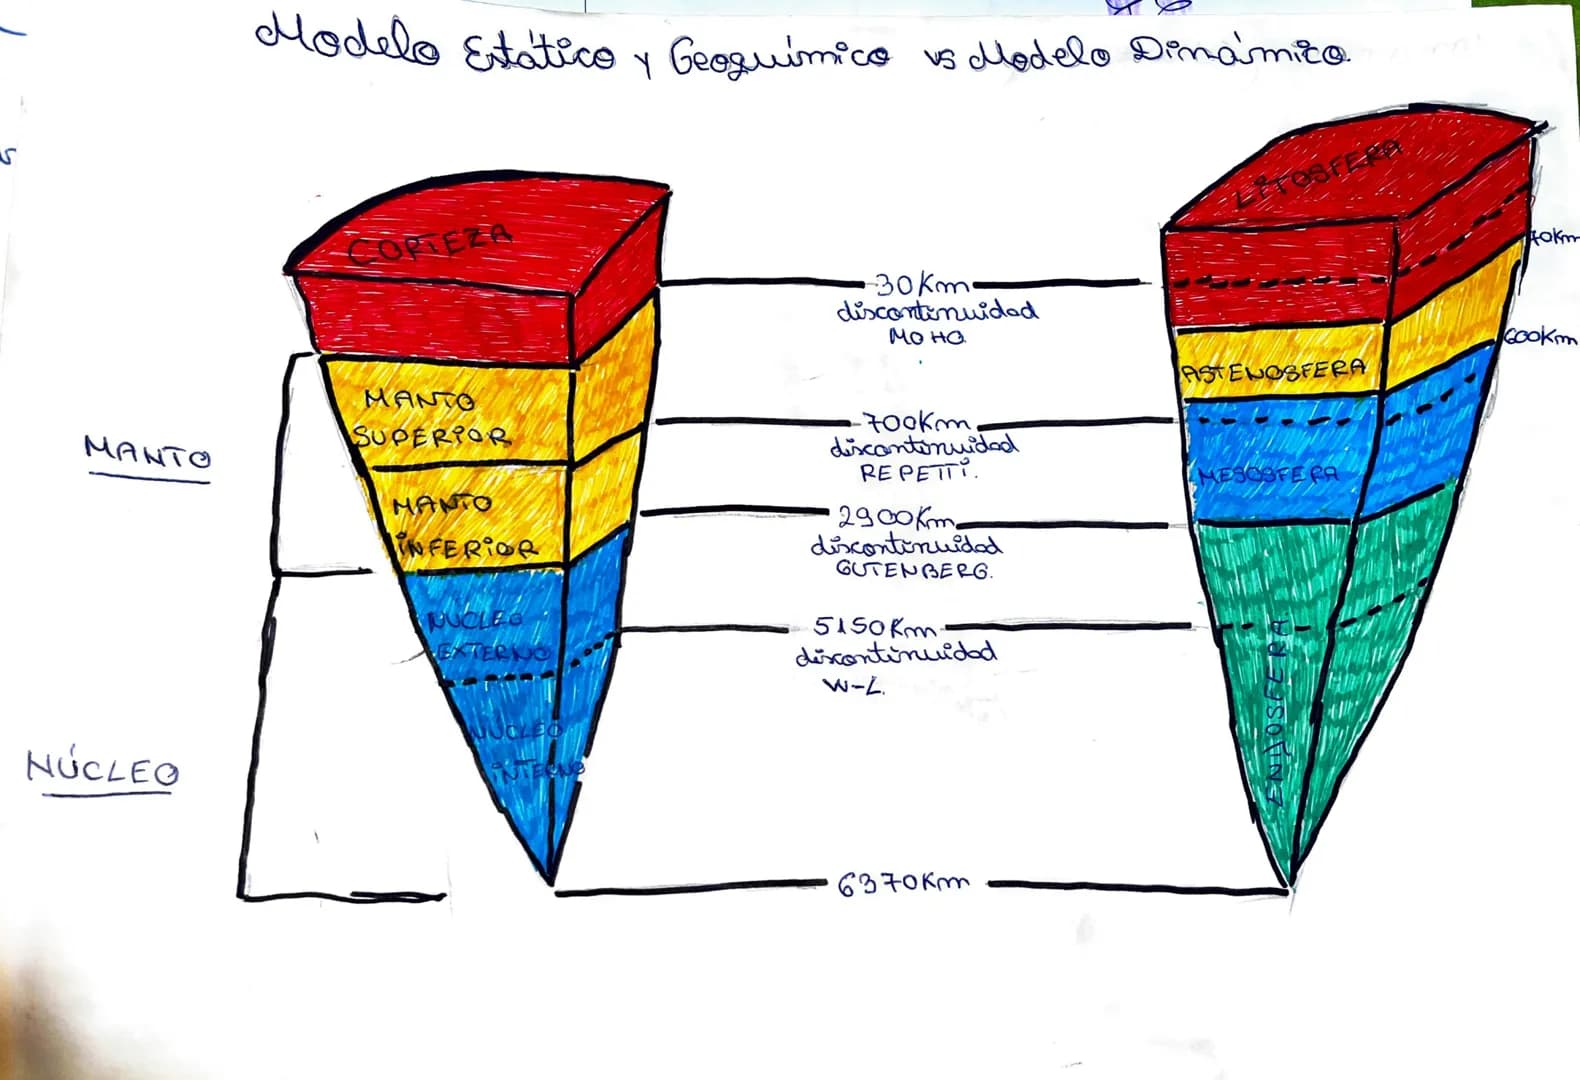 Modelo Estático y Geoquímico vs Modelo Dinámico.
CORTEZA
MANTO
SUPERIOR
MANTO
INFERIOR
NUCLEO
EXTERNO
NUCLEO
INTERNO
MANTO
NÚCLEO
30Km
discontinuidad
MOHO
700Km
discontinuidad
REPETTI.
2900Km
discontinuidad
GUTENBERG.
5150Km
discontinuidad
W-L.
6370Km
LITOSFERA
ASTENOSFERA
MESOSFERA
ENDOSFERA
70Km
600Km